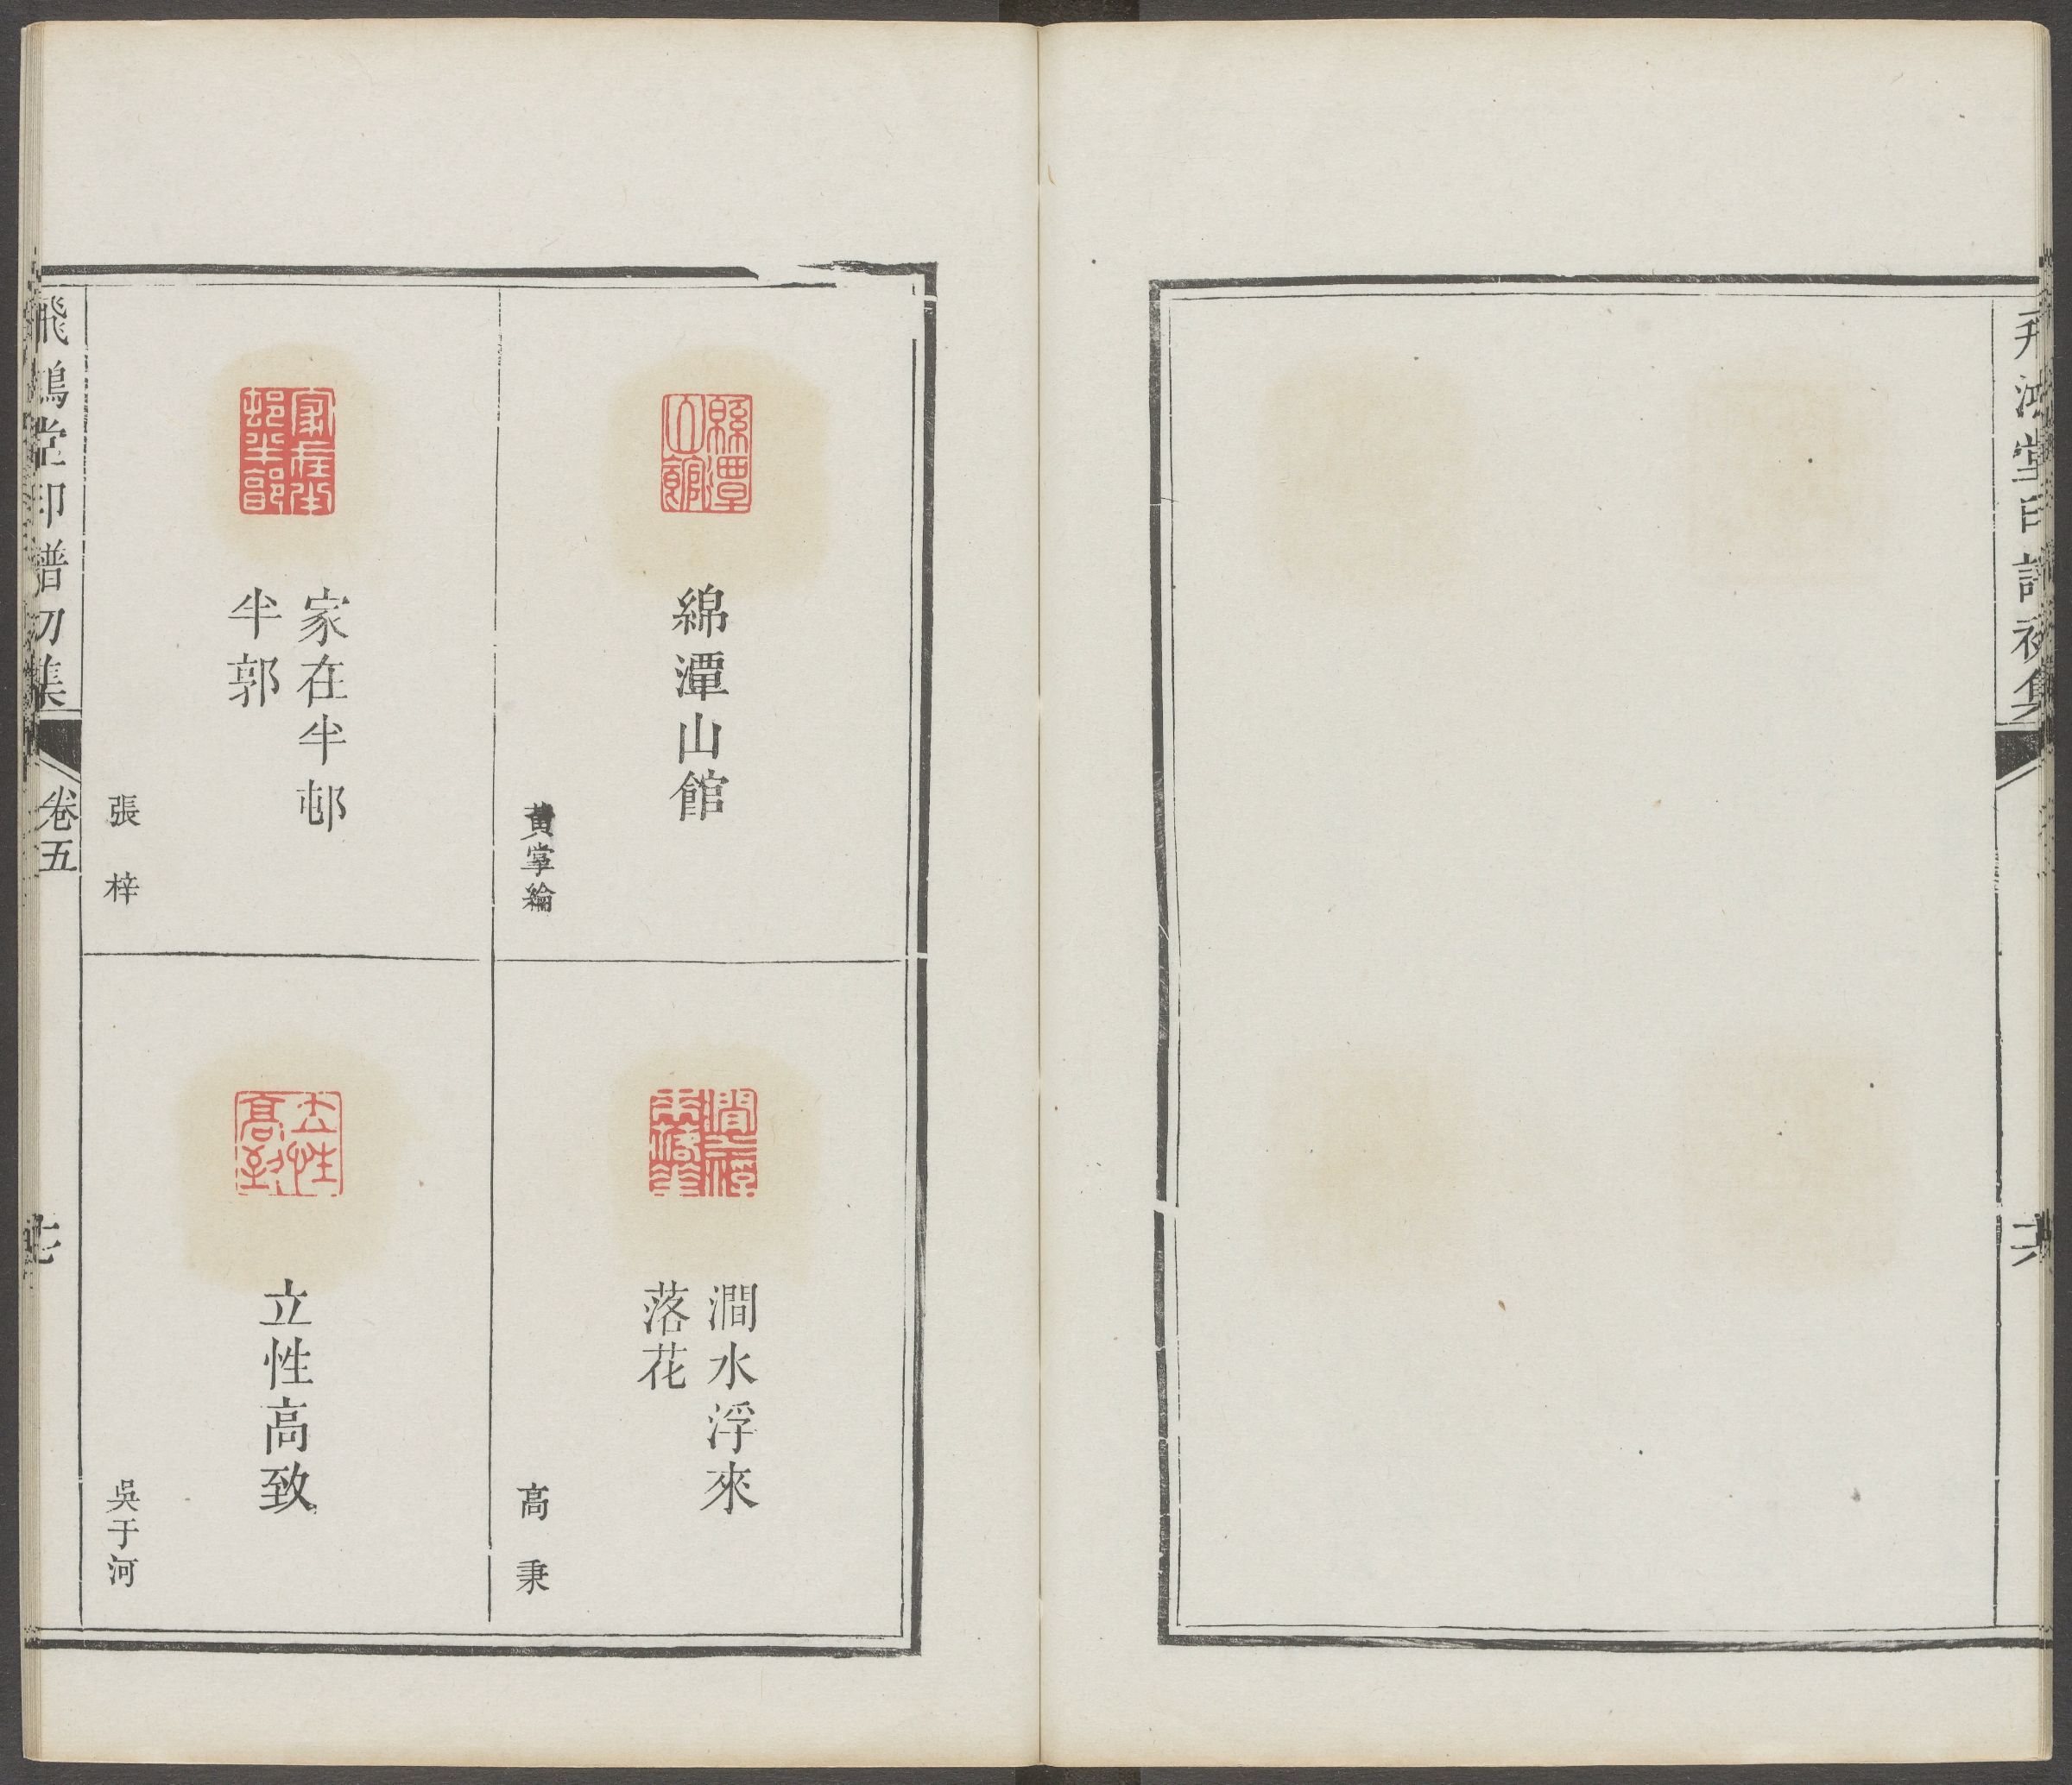 飛鴻堂印譜初集
六
綿潭山館
黃掌綸
澗水浮來
落花
高秉
家在半邨
半郭
張梓
立性高致
吳于河
飛鴻堂印譜初集
卷五
七